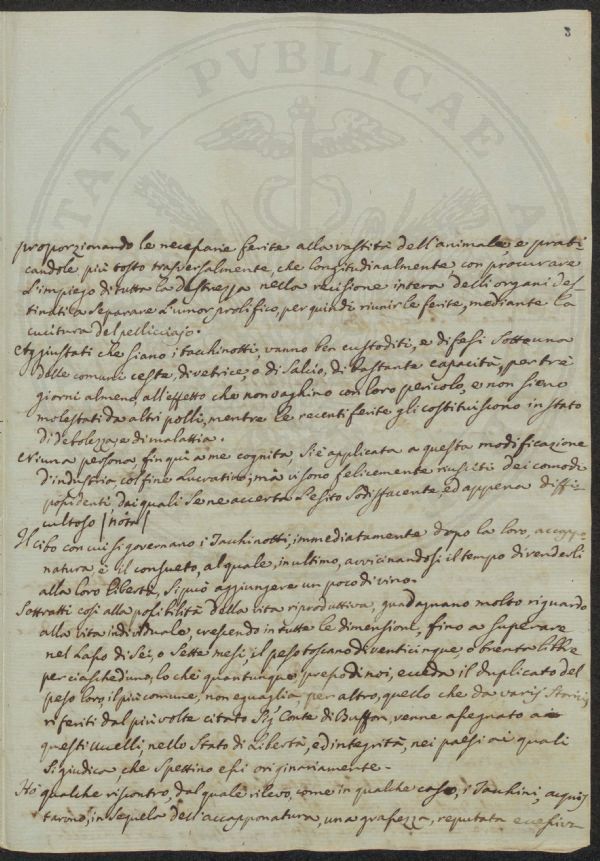 3
TATI PVBLICAE
proporzionando le necessarie ferite alla vastità dell'animale, e prati-
candole più tosto trasversalmente, che longitudinalmente con procurare
l'impiego di tutta la destrezza nella recisione intera delli organi des-
tinati a separare l'umor prolifico, per quindi riunir le ferite, mediante la
cucitura del pellicciajo.
Aggiustati che siano i tacchinotti, vanno ben custoditi, e difesi sotto una
delle comuni ceste, di vetrice, o di salcio, di bastante capacità, per tre
giorni almeno, all'effetto che non vaghino con loro pericolo, e non sieno
molestati da altri polli, mentre le recenti ferite gli costituiscono in stato
di debolezza, e di malattia.
Niuna persona fin quì a me cognita, si è applicata a questa modificazione
d'industria col fine lucrativo; mà vi sono felicemente riusciti dei comodi
possidenti dai quali se ne accerta l'esito sodisfacente, ed appena diffi-
cultoso
Il cibo con cui si governano i Tacchinotti, immediatamente dopo la loro, accappo-
natura è il consueto, al quale, in ultimo, avvicinandosi il tempo di renderli
alla loro libertà, si può aggiungere un poco di vino.
Sottratti così alla possibilità della vita riproduttiva, guadagnano molto riguardo
alla vita individuale, crescendo in tutte le dimensioni, fino a superare
nel lasso di sei, o sette mesi, il peso toscano di venticinque, o trenta libbre
per ciascheduno, lo che quantunque, presso di noi, ecceda il duplicato del
peso loro il più comune, non eguaglia, per altro, quello che da varij Storici,
riferiti dal più volte citato Sig. Conte di Buffon, venne assegnato a
questi Uccelli, nello Stato di Libertà, ed integrità, nei paesi ai quali
si giudica che spettino essi originariamente.
Hò qualche riscontro, dal quale rilevo, come in qualche caso, i Tacchini, acquis-
tarono, in sequela dell'accapponatura, una grassezza, reputata eccessiva